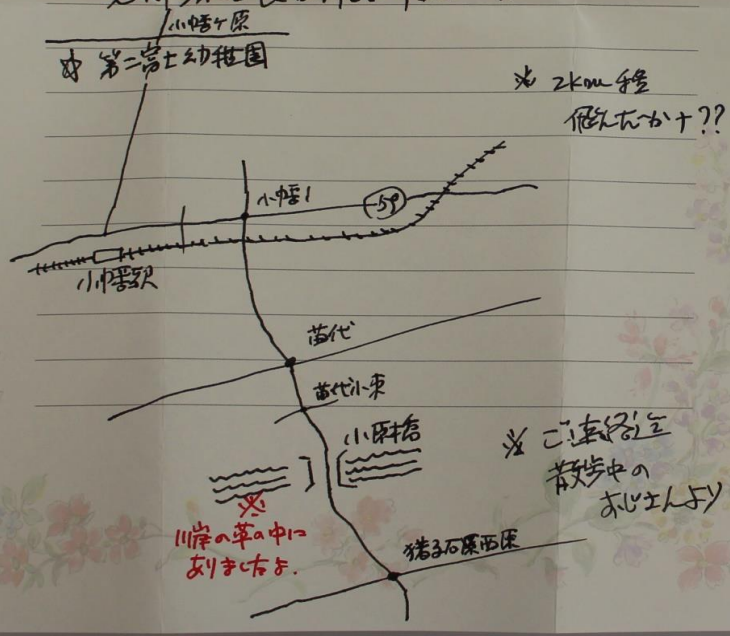 小幡ヶ原
☆ 第二富士幼稚園
※ 2km程
飛んだかナ??
小幡1
59
小幡駅
苗代
苗代小東
小原橋
※ ご連絡迄
散歩中の
おじさんより
※
川岸の草の中に
ありましたよ.
猪子石原西原